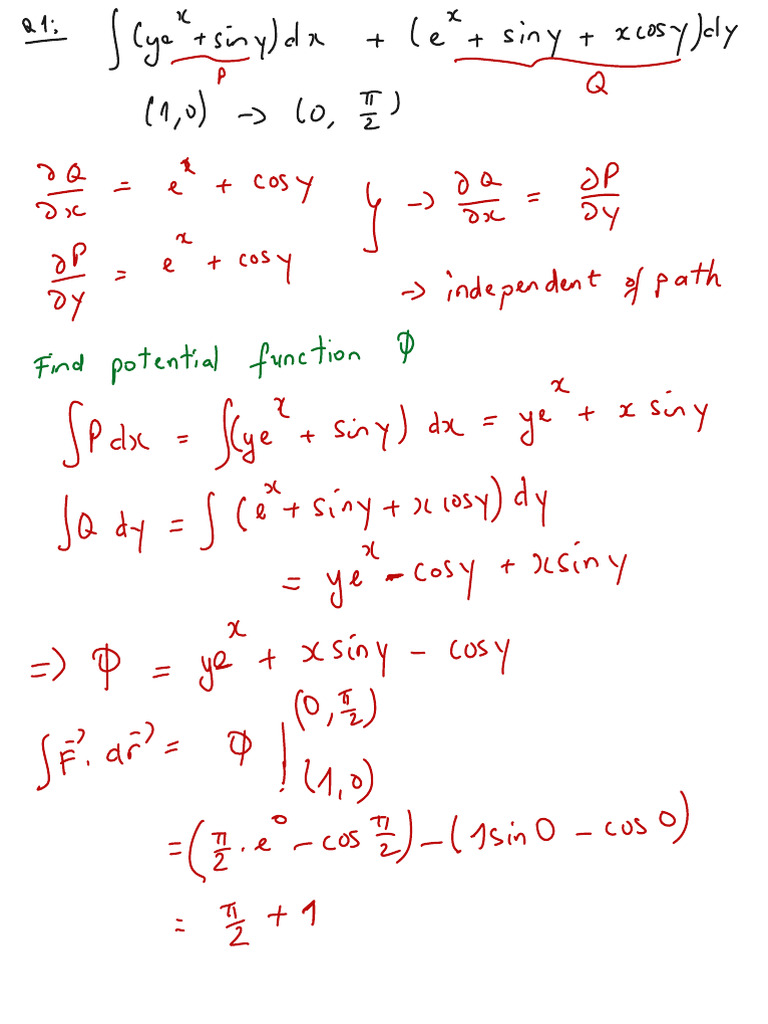 Q1: ∫(ye^x + sin y)dx + (e^x + sin y + x cos y)dy
P Q
(1,0) → (0, π/2)
∂Q/∂x = e^x + cos y } → ∂Q/∂x = ∂P/∂y
∂P/∂y = e^x + cos y
→ independent of path
Find potential function Φ
∫P dx = ∫(ye^x + sin y) dx = ye^x + x sin y
∫Q dy = ∫(e^x + sin y + x cos y) dy
= ye^x - cos y + x sin y
=> Φ = ye^x + x sin y - cos y
∫F⃗. dr⃗ = Φ |_(1,0)^(0, π/2)
= (π/2 . e^0 - cos π/2) - (1 sin 0 - cos 0)
= π/2 + 1